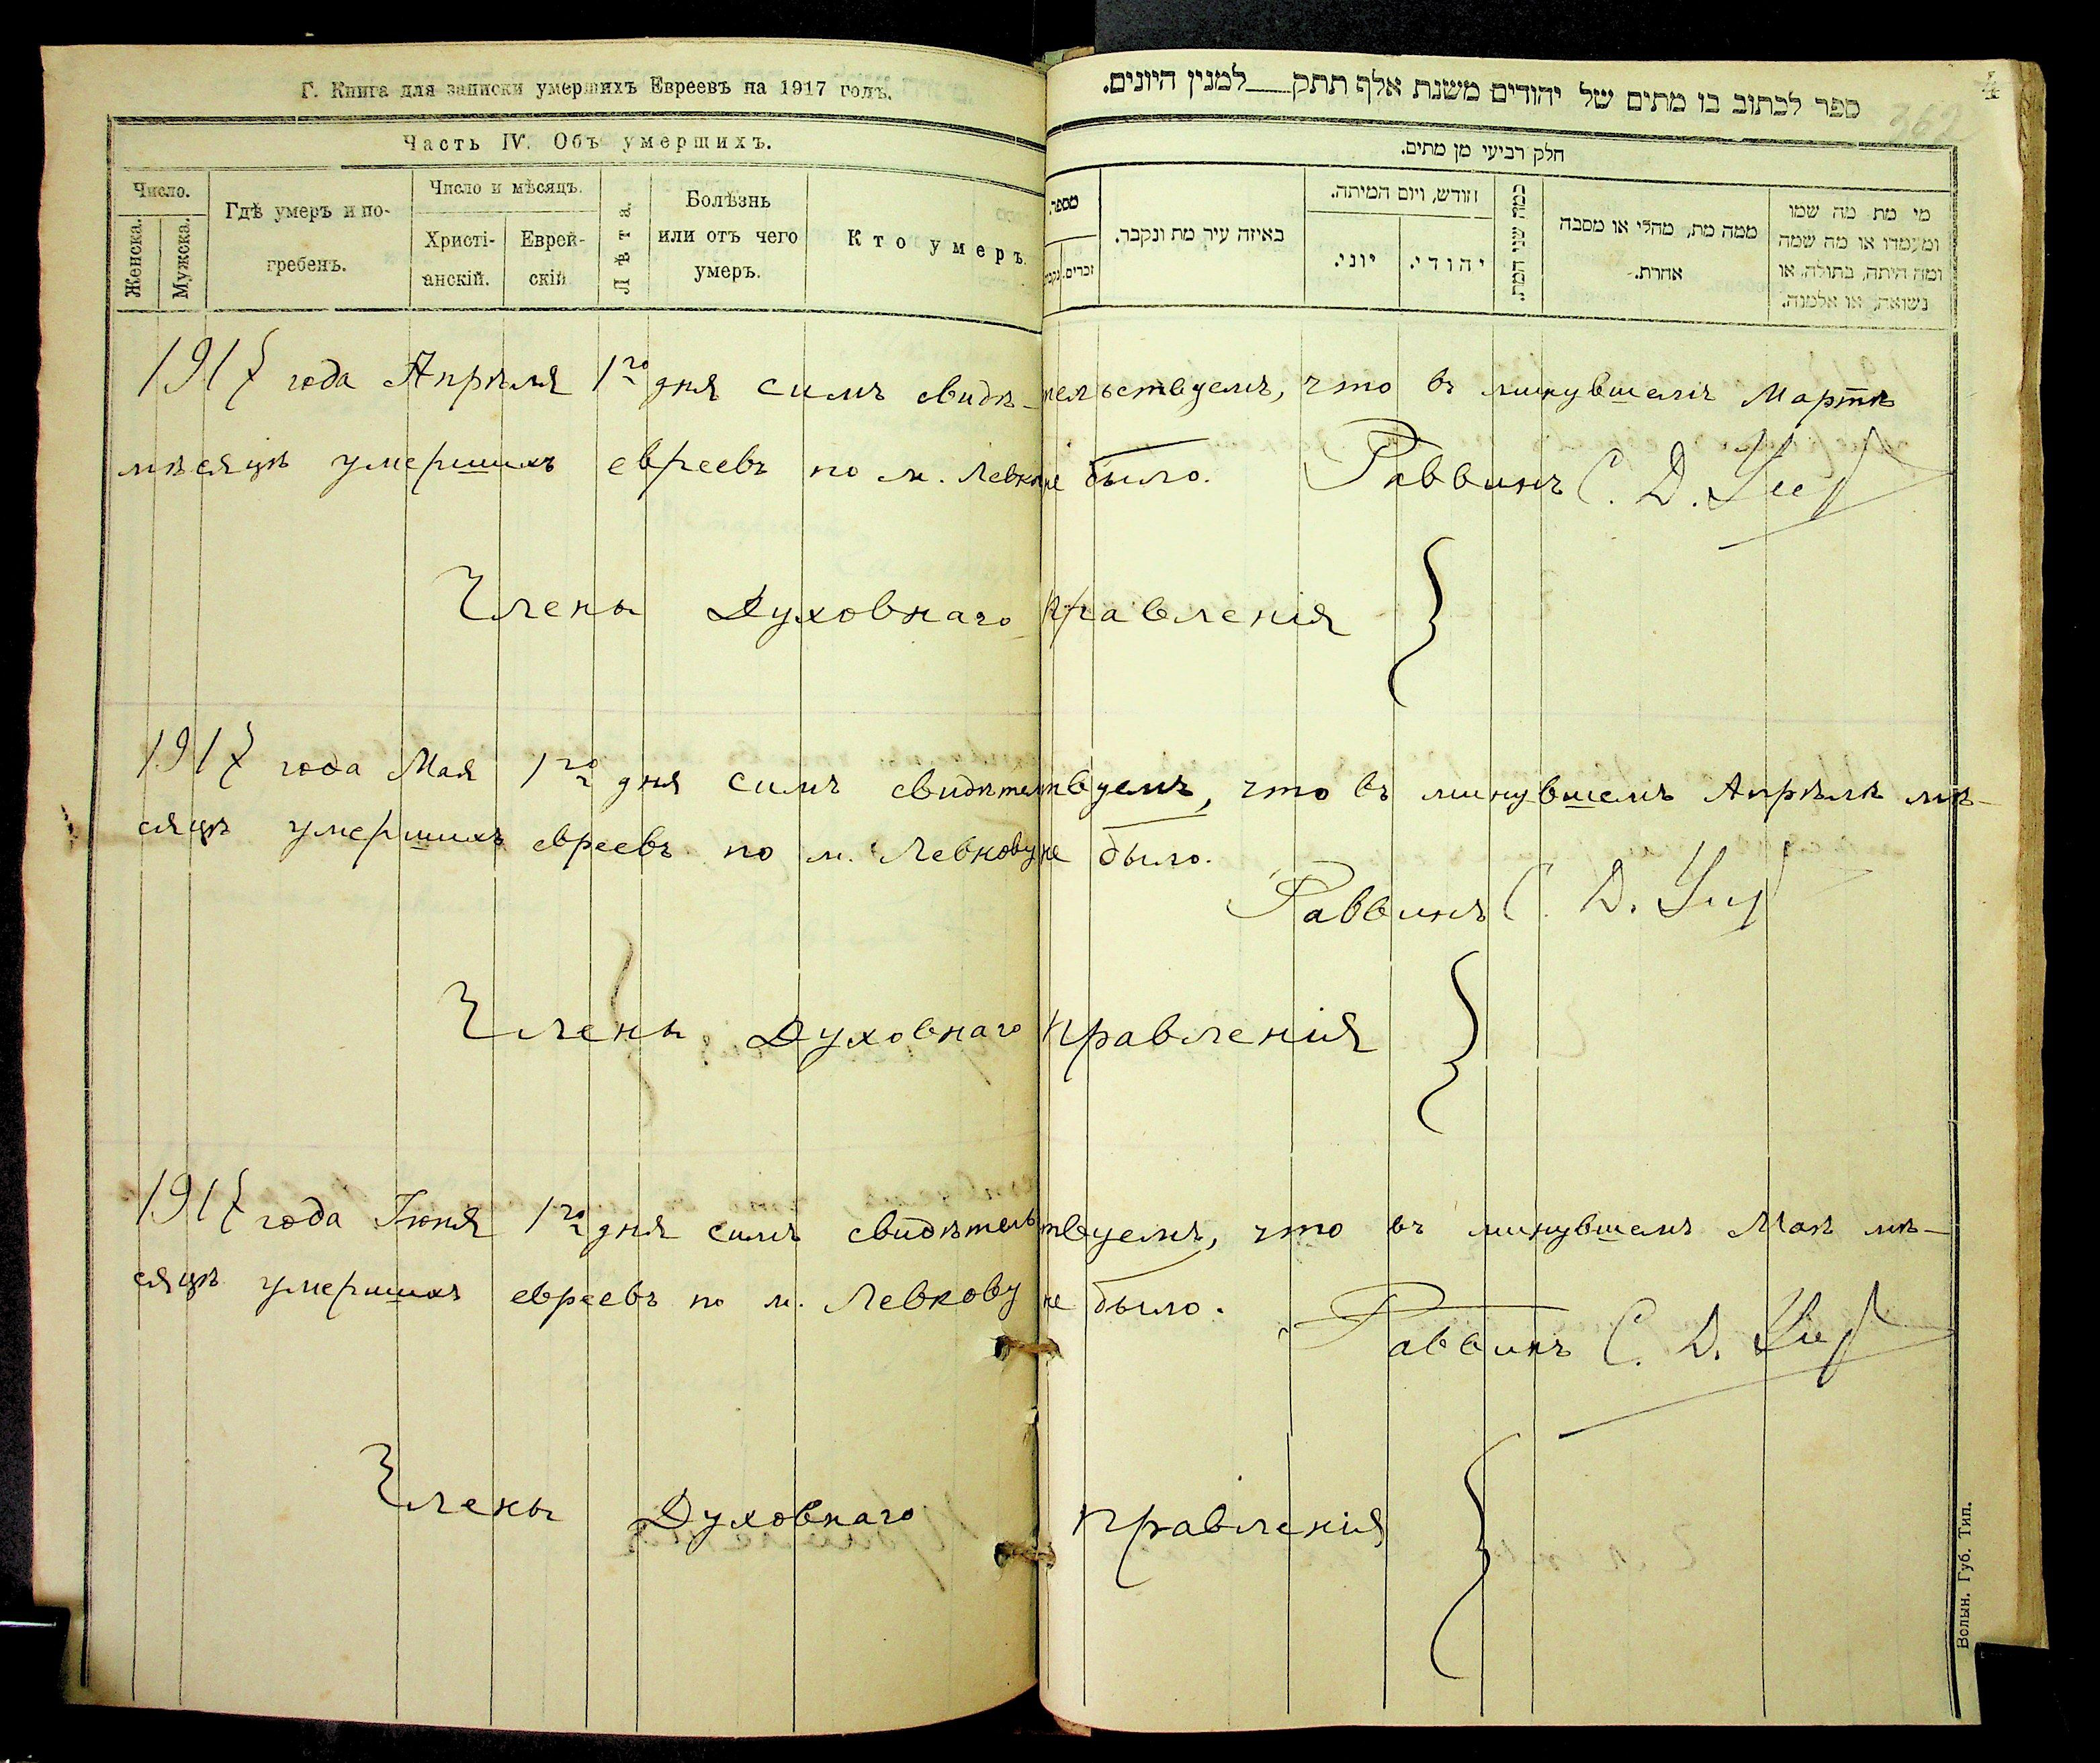 Г. Книга для записки умершихъ Евреевъ на 1917 годъ.
Часть IV. Объ умершихъ.
Число.
Женска.
Мужска.
Гдѣ умеръ и по-
гребенъ.
Число и мѣсяцъ.
Христі-
анскій.
Еврей-
скій
Лѣта.
Болѣзнь
или отъ чего
умеръ.
Кто умеръ.
4
362
ספר לכתוב בו מתים של יהודים משנת אלף תתק___למנין היונים.
חלק רביעי מן מתים.
מספר.
זכרים.
באיזה עיר מת ונקבר.
חודש, ויום המיתה.
יוני.
יהודי.
כמה שני המת.
ממה מת, מחלי או מסבה
אחרת.
מי מת מה שמו
ומעמדו או מה שמה
ומה היתה, בתולה, או
נשואה, או אלמנה.
1917 года Апрѣля 1го дня симъ свидѣ-тельствуемъ, что въ минувшемъ Мартѣ
мѣсяцѣ умершихъ евреевъ по м. Левков не было. Раввинъ С. Д.
Члены Духовнаго правленія
1917 года Мая 1го дня симъ свидѣтельствуемъ, что въ минувшемъ Апрѣлѣ мѣ-
сяцѣ умершихъ евреевъ по м. Левкову не было.
Раввинъ С. Д.
Члены Духовнаго правленія
1917 года Іюня 1го дня симъ свидѣтельствуемъ, что въ минувшемъ Маѣ мѣ-
сяцѣ умершихъ евреевъ по м. Левкову не было.
Раввинъ С. Д.
Члены Духовнаго правленія
Волын. Губ. Тип.